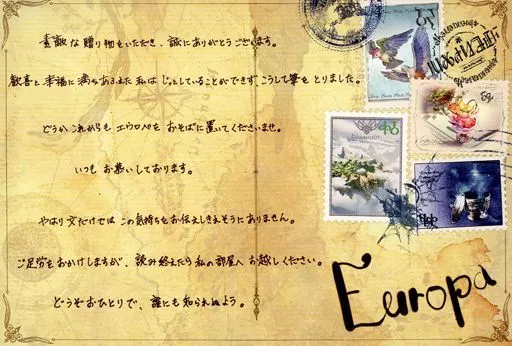 素敵な贈り物をいただき、誠にありがとうございます。
歓喜と幸福に満ちあふれた私はじっとしていることができず、こうして筆をとりました。
どうかこれからもエウロペをおそばに置いてくださいませ。
いつもお慕いしております。
やはり文だけではこの気持ちをお伝えしきえそうにありません。
ご足労をおかけしますが、読み終えたら私の部屋へお越しください。
どうぞおひとりで、誰にも知られぬよう。
Europa